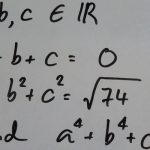 b, c ∈ ℝ
+ b + c = 0
b² + c² = √74
d a⁴ + b⁴ + c